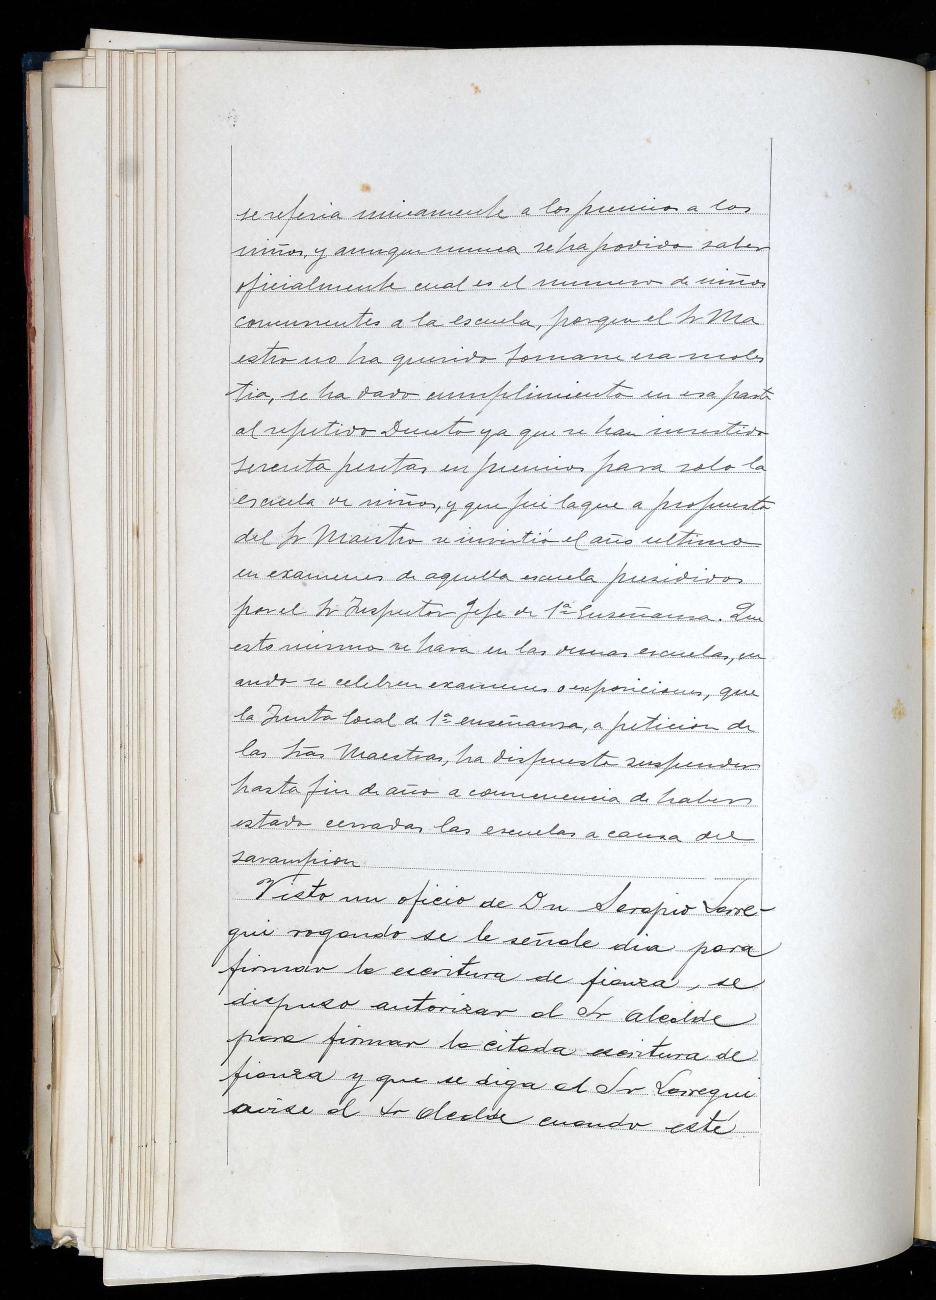 se referia unicamente a los premios a los
niños, y aunque nunca se ha podido saber
oficialmente cual es el numero de niños
concurrentes a la escuela, porque el Sr Ma
estro no ha querido tomarse esa moles
tia, se ha dado cumplimiento en esa parte
al repetido Decreto ya que se han invertido
sesenta pesetas en premios para solo la
escuela de niños, y que fué la que a propuesta
del Sr Maestro se invirtió el año ultimo
en examenes de aquella escuela presididos
por el Sr Inspector Jefe de 1ª Enseñansa. Que
esto mismo se hara en las demas escuelas, cu
ando se celebren examenes o exposiciones, que
la Junta local de 1ª enseñansa, a peticion de
las Srãs Maestras, ha dispuesto suspender
hasta fin de año a consecuencia de haber
estado cerradas las escuelas a causa del
sarampion
Visto un oficio de Dn Serapio Larre-
gui rogando se le señale dia para
firmar la escritura de fianza, se
dispuso autorizar al Sr Alcalde
para firmar la citada escritura de
fianza y que se diga al Sr Larregui
avise al Sr Alcalde cuando este